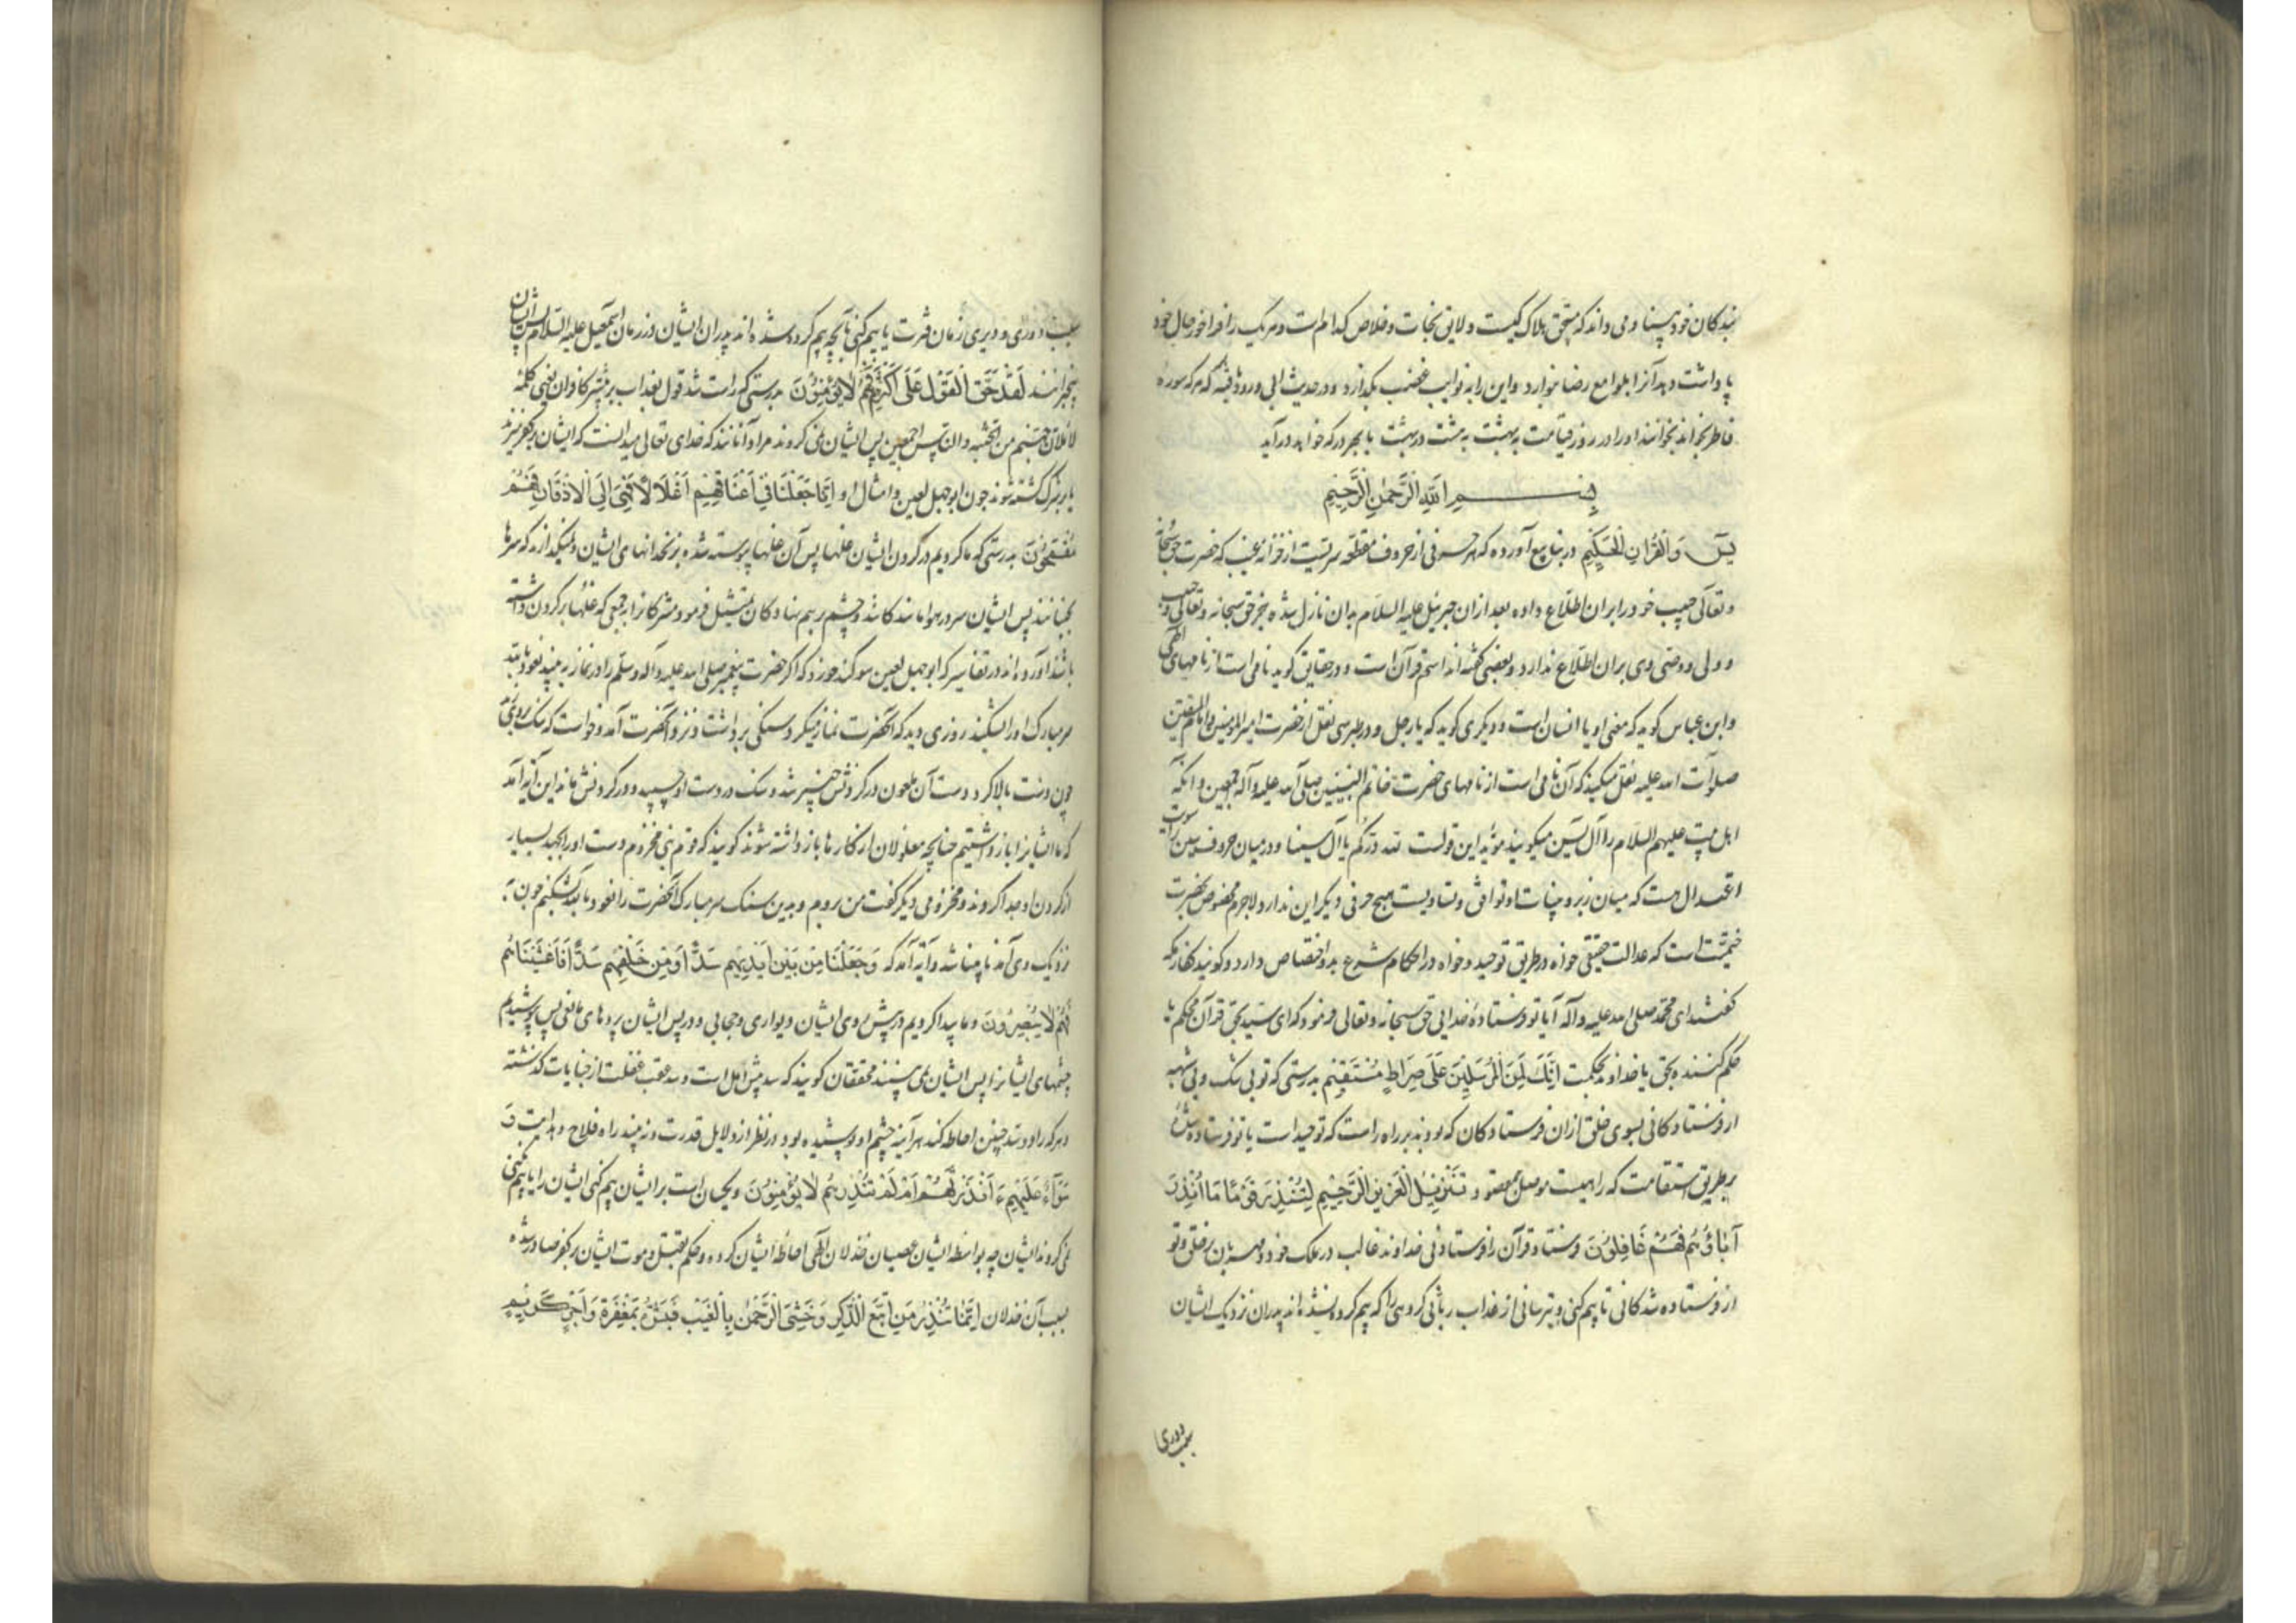 بندکان خود بینا و می داند که مستحق هلاک کیست و لایق نجات و خلاص کدام است و هر یک را فراخور حال خود
پاداشت دهد آنرا بلوامع رضا بنوازد و این را بنوایب غضب بکدازد و در حدیث ابی ورود یافته که هر که سوره
فاطر بخواند بخوانند او را در روز قیامت به بهشت هشت در بهشت تا بهر در که خواهد درآید
بسم الله الرحمن الرحیم
یس وَالْقُرْآنِ الْحَکِیمِ در ینابیع آورده که هر حرفی از حروف مقطعه سریست از خزانه غیب که حضرت حق سبحانه
و تعالی حبیب خود را بر ان اطلاع داده بعد ازان جبرئیل علیه السلام بدان نازل شده بجز حق سبحانه و تعالی و حبیب
و ولی و وصی وی بران اطلاع ندارد و بعضی کفته اند اسم قرآن است و در حقایق کوید نامی است از نامهای الهی
و ابن عباس کوید که معنی او یا انسان است و دیکری کوید که یا رجل و در طبرسی نقل از حضرت امیرالمومنین و امام المتقین
صلوات الله علیه نقل میکنند که آن نامی است از نامهای حضرت خاتم النبیین صلی الله علیه و آله اجمعین و آنکه
اهل بیت علیهم السلام را آل یس میکویند مؤید این قولست لله درکم یا آل یسینا و در میان حروف سین را سویت
اعتدال هست که میان زبر و بینات او توافق و تساویست هیچ حرفی دیکر این ندارد لاجرم مخصوص بحضرت
ختمیت است که عدالت حقیقی خواه در طریق توحید و خواه در احکام شرع بدو اختصاص دارد و کویند کفار مکه
کفتند ای محمد صلی الله علیه و آله آیا تو فرستاده خدایی حق سبحانه و تعالی فرمود که ای سید بحق قرآن محکم یا
حکم کننده بحق یا خداوند حکمت اِنَّکَ لَمِنَ الْمُرْسَلِینَ عَلَی صِرَاطٍ مُسْتَقِیمٍ بدرستی که تو بی شک و بی شبهه
از فرستادکانی بسوی خلق ازان فرستادکان که بودند بر راه راست که توحید است یا تو فرستاده شده
بر طریق استقامت که راهیست موصل بمقصود تَنْزِیلَ الْعَزِیزِ الرَّحِیمِ لِتُنْذِرَ قَوْمًا مَا اُنْذِرَ
آبَاؤُهُمْ فَهُمْ غَافِلُونَ فرستاد قرآن را فرستادنی خداوند غالب در ملک خود و مهربان بر خلق و تو
از فرستاده شدکانی تا بیم کنی و بترسانی از عذاب ربانی کروهی را که بیم کرده نشده اند پدران نزدیک ایشان
بسبب دوری
بسبب دوری و دیری زمان فترت یا بیم کنی بآنچه بیم کرده شده اند پدران ایشان در زمان اسمعیل علیه السلام پس ایشان
بیخبرانند لَقَدْ حَقَّ الْقَوْلُ عَلَی اَکْثَرِهِمْ فَهُمْ لَا یُؤْمِنُونَ بدرستی که راست شد قول بعذاب بر بیشتر کافران یعنی کلمه
لاملان جهنم من الجنه والناس اجمعین پس ایشان نمی کروند مراد آنانند که خدای تعالی میدانست که ایشان بر کفر میرند
یا بر شرک کشته شوند چون ابوجهل لعین و امثال او اِنَّا جَعَلْنَا فِی اَعْنَاقِهِمْ اَغْلَالًا فَهِیَ اِلَی الْاَذْقَانِ فَهُمْ
مُقْمَحُونَ بدرستی که ما کردیم در کردن ایشان غلها پس آن غلها پیوسته شده بزنخدانهای ایشان و نمیکذارند که سرها
بجنبانند پس ایشان سر در هوا ماندکانند و چشم بر هم نهادکان تمثیل فرمود مشرکانرا بجمعی که غلها بر کردن داشته
باشند آورده اند در تفاسیر که ابوجهل لعین سوکند خورد که اکر حضرت پیغمبر صلی الله علیه و آله و سلم را در نماز به بیند نعوذ بالله
سر مبارک او را بشکند روزی دید که آنحضرت نماز میکرد سنکی برداشت و نزد آنحضرت آمد و خواست که سنک بروی زند
چون دست بالا کرد دست آن ملعون در کردنش چنبر شد و سنک در دست او چسپید و در کردنش ماند این آیه آمد
که ما ایشانرا بازداشتیم چنانچه مغلولان از کارها بازداشته شوند کویند که قوم بنی مخزوم دست او را بجهد بسیار
از کردن او جدا کردند و مخزومی دیکر کفت من بروم و بدین سنک سر مبارک آنحضرت را نعوذ بالله بشکنم چون به
نزدیک وی آمد نابینا شد و آیه آمد که وَجَعَلْنَا مِنْ بَیْنِ اَیْدِیهِمْ سَدًّا وَمِنْ خَلْفِهِمْ سَدًّا فَاَغْشَیْنَاهُمْ
فَهُمْ لَا یُبْصِرُونَ و ما پیدا کردیم در پیش روی ایشان دیواری و حجابی و در پس ایشان پردهای مانعی پس پوشیدیم
چشمهای ایشانرا پس ایشان نمی بینند محققان کویند که سد پیش امل است و سد عقب غفلت از جنایات کذشته
و هر که را دو سد چنین احاطه کند هر آینه چشم او پوشیده بود و در نظر از دلایل قدرت و نه بیند راه فلاح و هدایت وَ
سَوَاءٌ عَلَیْهِمْ ءَاَنْذَرْتَهُمْ اَمْ لَمْ تُنْذِرْهُمْ لَا یُؤْمِنُونَ و یکسان است بر ایشان بیم کنی ایشان را یا بیم نکنی
نمی کروند ایشان چه بواسطه ایشان عصیان خذلان الهی احاطه ایشان کرده و حکم بقتل و موت ایشان بر کفر صادر شده
بسبب آن خذلان اِنَّمَا تُنْذِرُ مَنِ اتَّبَعَ الذِّکْرَ وَخَشِیَ الرَّحْمٰنَ بِالْغَیْبِ فَبَشِّرْهُ بِمَغْفِرَةٍ وَاَجْرٍ کَرِیمٍ